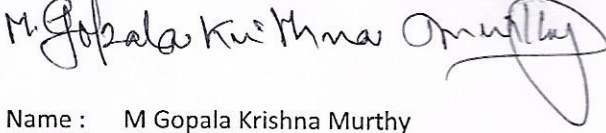 M. Gopala Krishna Murthy
Name : M Gopala Krishna Murthy